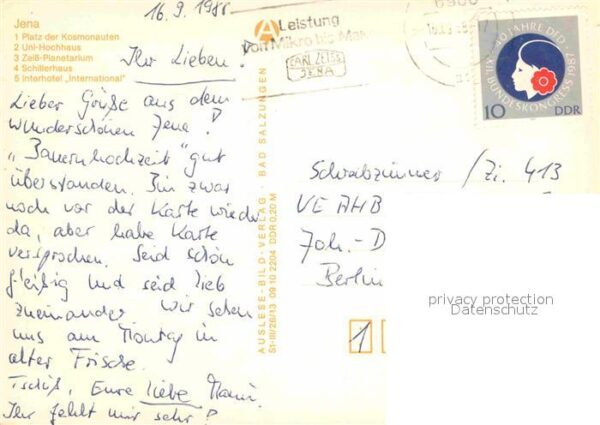 16.9.1988
Jena
1 Platz der Kosmonauten
2 Uni-Hochhaus
3 Zeiß-Planetarium
4 Schillerhaus
5 Interhotel „International"
Ihr Lieben!
Lieber Grüße aus dem
wunderschönen Jena!
„Bauernhochzeit" gut
überstanden. Bin zwar
noch vor der Karte wieder
da, aber habe Karte
versprochen. Seid schön
fleißig und seid lieb
zueinander. Wir sehen
uns am Montag in
alter Frische.
Tschüß, Eure liebe
Ihr fehlt mir sehr!
AUSLESE-BILD-VERLAG · BAD SALZUNGEN
St-III/26/13 09 10 2204 DDR 0,20 M
Leistung
von Mikro bis
CARL ZEISS
JENA
6900
40 JAHRE DFD
XII. BUNDESKONGRESS 1987
10 DDR
Schreibzimmer / Zi. 413
VE AHB
Joh.-D
Berlin
1
privacy protection
Datenschutz